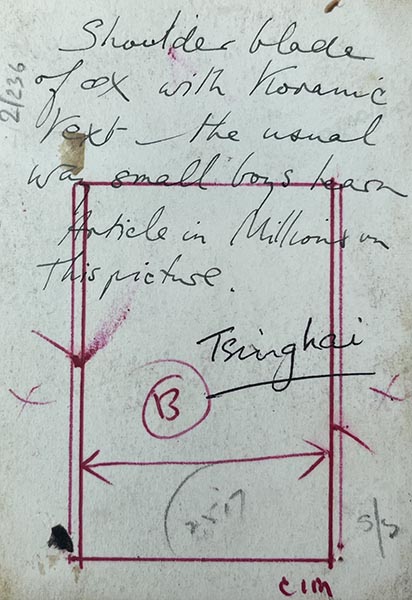 Shoulder blade
of ox with Koranic
text – the usual
way small boys learn
Article in Millions on
this picture.
Tsinghai
B
2/236
CIM